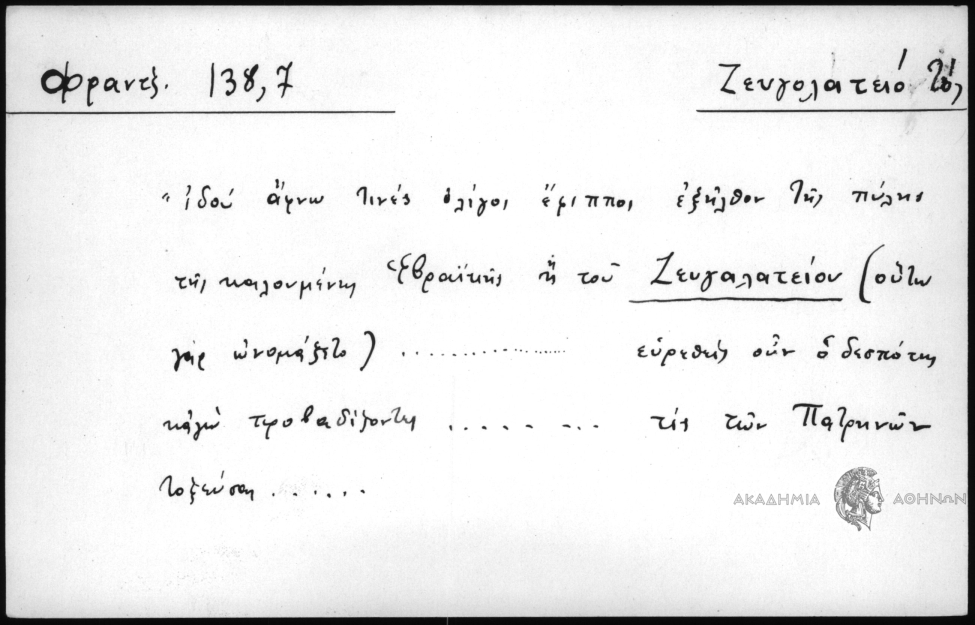 Φραντζ. 138,7
Ζευγολατειό
"ἰδού ἄφνω τινές ὀλίγοι ἔφιπποι ἐξῆλθον τῆς πύλης
τῆς καλουμένης Ἑβραϊκῆς ἤ τοῦ Ζευγαλατείου (οὕτω
γάρ ὠνομάζετο) .................. εὑρεθείς οὖν ὁ δεσπότης
κἀγώ προβαδίζοντες ....... τίς τῶν Πατρηνῶν
τοξεύσας ......
ΑΚΑΔΗΜΙΑ ΑΘΗΝΩΝ